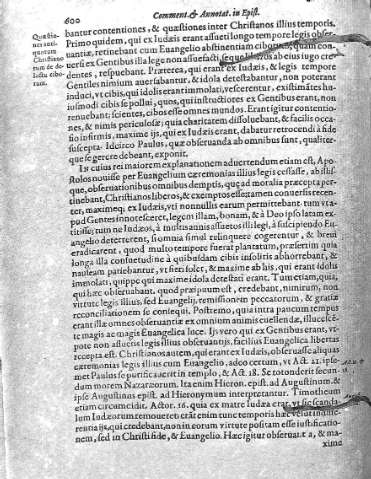 600 Comment. & Annotat. in Epist.
bantur contentiones, & quæstiones inter Christianos illius temporis.
Primo quidem, qui ex Iudæis erant assueti longo tempore legis obser-
uantiæ, retinebant cum Euangelio abstinentiam ciborum, quam con-
uersi ex Gentibus illa lege non assuefacti, sequi liberos ab eius iugo cre-
dentes, respuebant. Præterea, qui erant ex Iudæis, & legis tempore
Gentiles nimium auersabantur, & idola detestabantur, non poterant
induci, vt cibis, qui idolis erant immolati, vescerentur, existimātes hu-
iusmodi cibis se pollui, quos, qui instructiores ex Gentibus erant, non
renuebant, scientes, cibos esse omnes mundos. Erant igitur contentio-
nes, & nimis periculosæ, quia charitatem dissoluebant, & facili occa-
sio infirmis, maxime ijs, qui ex Iudæis erant, dabatur retrocedi à fide
suscepta. Idcirco Paulus, quæ obseruanda ab omnibus sunt, qualiter-
que se gerere debeant, exponit.
In cuius rei maiorem explanationem aduertendum etiam est, Apo-
stolos nouisse per Euangelium cæremonias illius legis cessasse, ab illis-
que, obseruationibus omnibus demptis, quæ ad moralia præcepta per-
tinebant, Christianos liberos, & exemptos esse: tamen conuersis recen-
ter, maxime q; ex Iudæis, vti nonnullis earum permittebant, tum vt a-
pud Gentes innotesceret, legem illam, bonam, & à Deo ipso latam ex-
titisse; tum ne Iudæos, à multis annis assuetos illi legi, à suscipiendo Eu-
angelio deterrerent, si omnia simul relinquere cogerentur, & breui
eradicarent, quod multo tempore fuerat plantatum, præsertim quia
longa illa consuetudine à quibusdam cibis insolitis abhorrebant, &
nauseam patiebantur, vt fieri solet, & maxime ab his, qui erant idolis
immolati, quippe qui maxime idola detestari erant. Tum etiam, quia,
qui hæc obseruabant, quod præcipuum est, credebant, nimirum, non
virtute legis illius, sed Euangelij, remissionem peccatorum, & gratiæ
reconciliationem se consequi. Postremo, quia intra paucum tempus
erant illæ omnes obseruantiæ ex omnium animis euellendæ, illucescē-
te magis ac magis Euangelica luce. Ijs vero qui ex Gentibus erant, vt-
pote non assuetis legis illius obseruantijs, facilius Euangelica libertas
accepta est. Christianos autem, qui erant ex Iudæis, obseruasse aliquas
cæremonias legis illius cum Euangelio, adeo certum, vt Act. 21. ipse-
met Paulus se purificauerit in templo, & Act. 18. se totonderit secun-
dum morem Nazaræorum. Ita enim Hieron. epist. ad Augustinum, &
ipse Augustinus epist. ad Hieronymum interpretantur. Timotheum
etiam circumcidit. Actor. 16. quia ex matre Iudæa erat,
lum Iudæorum remoueret: erāt enim tunc temporis hæc
rijs, qui credebant, non in eorum virtute positam esse iustificatio-
nem, sed in Christi fide, & Euangelio. Hæc igitur obseruata, & ma-
xime